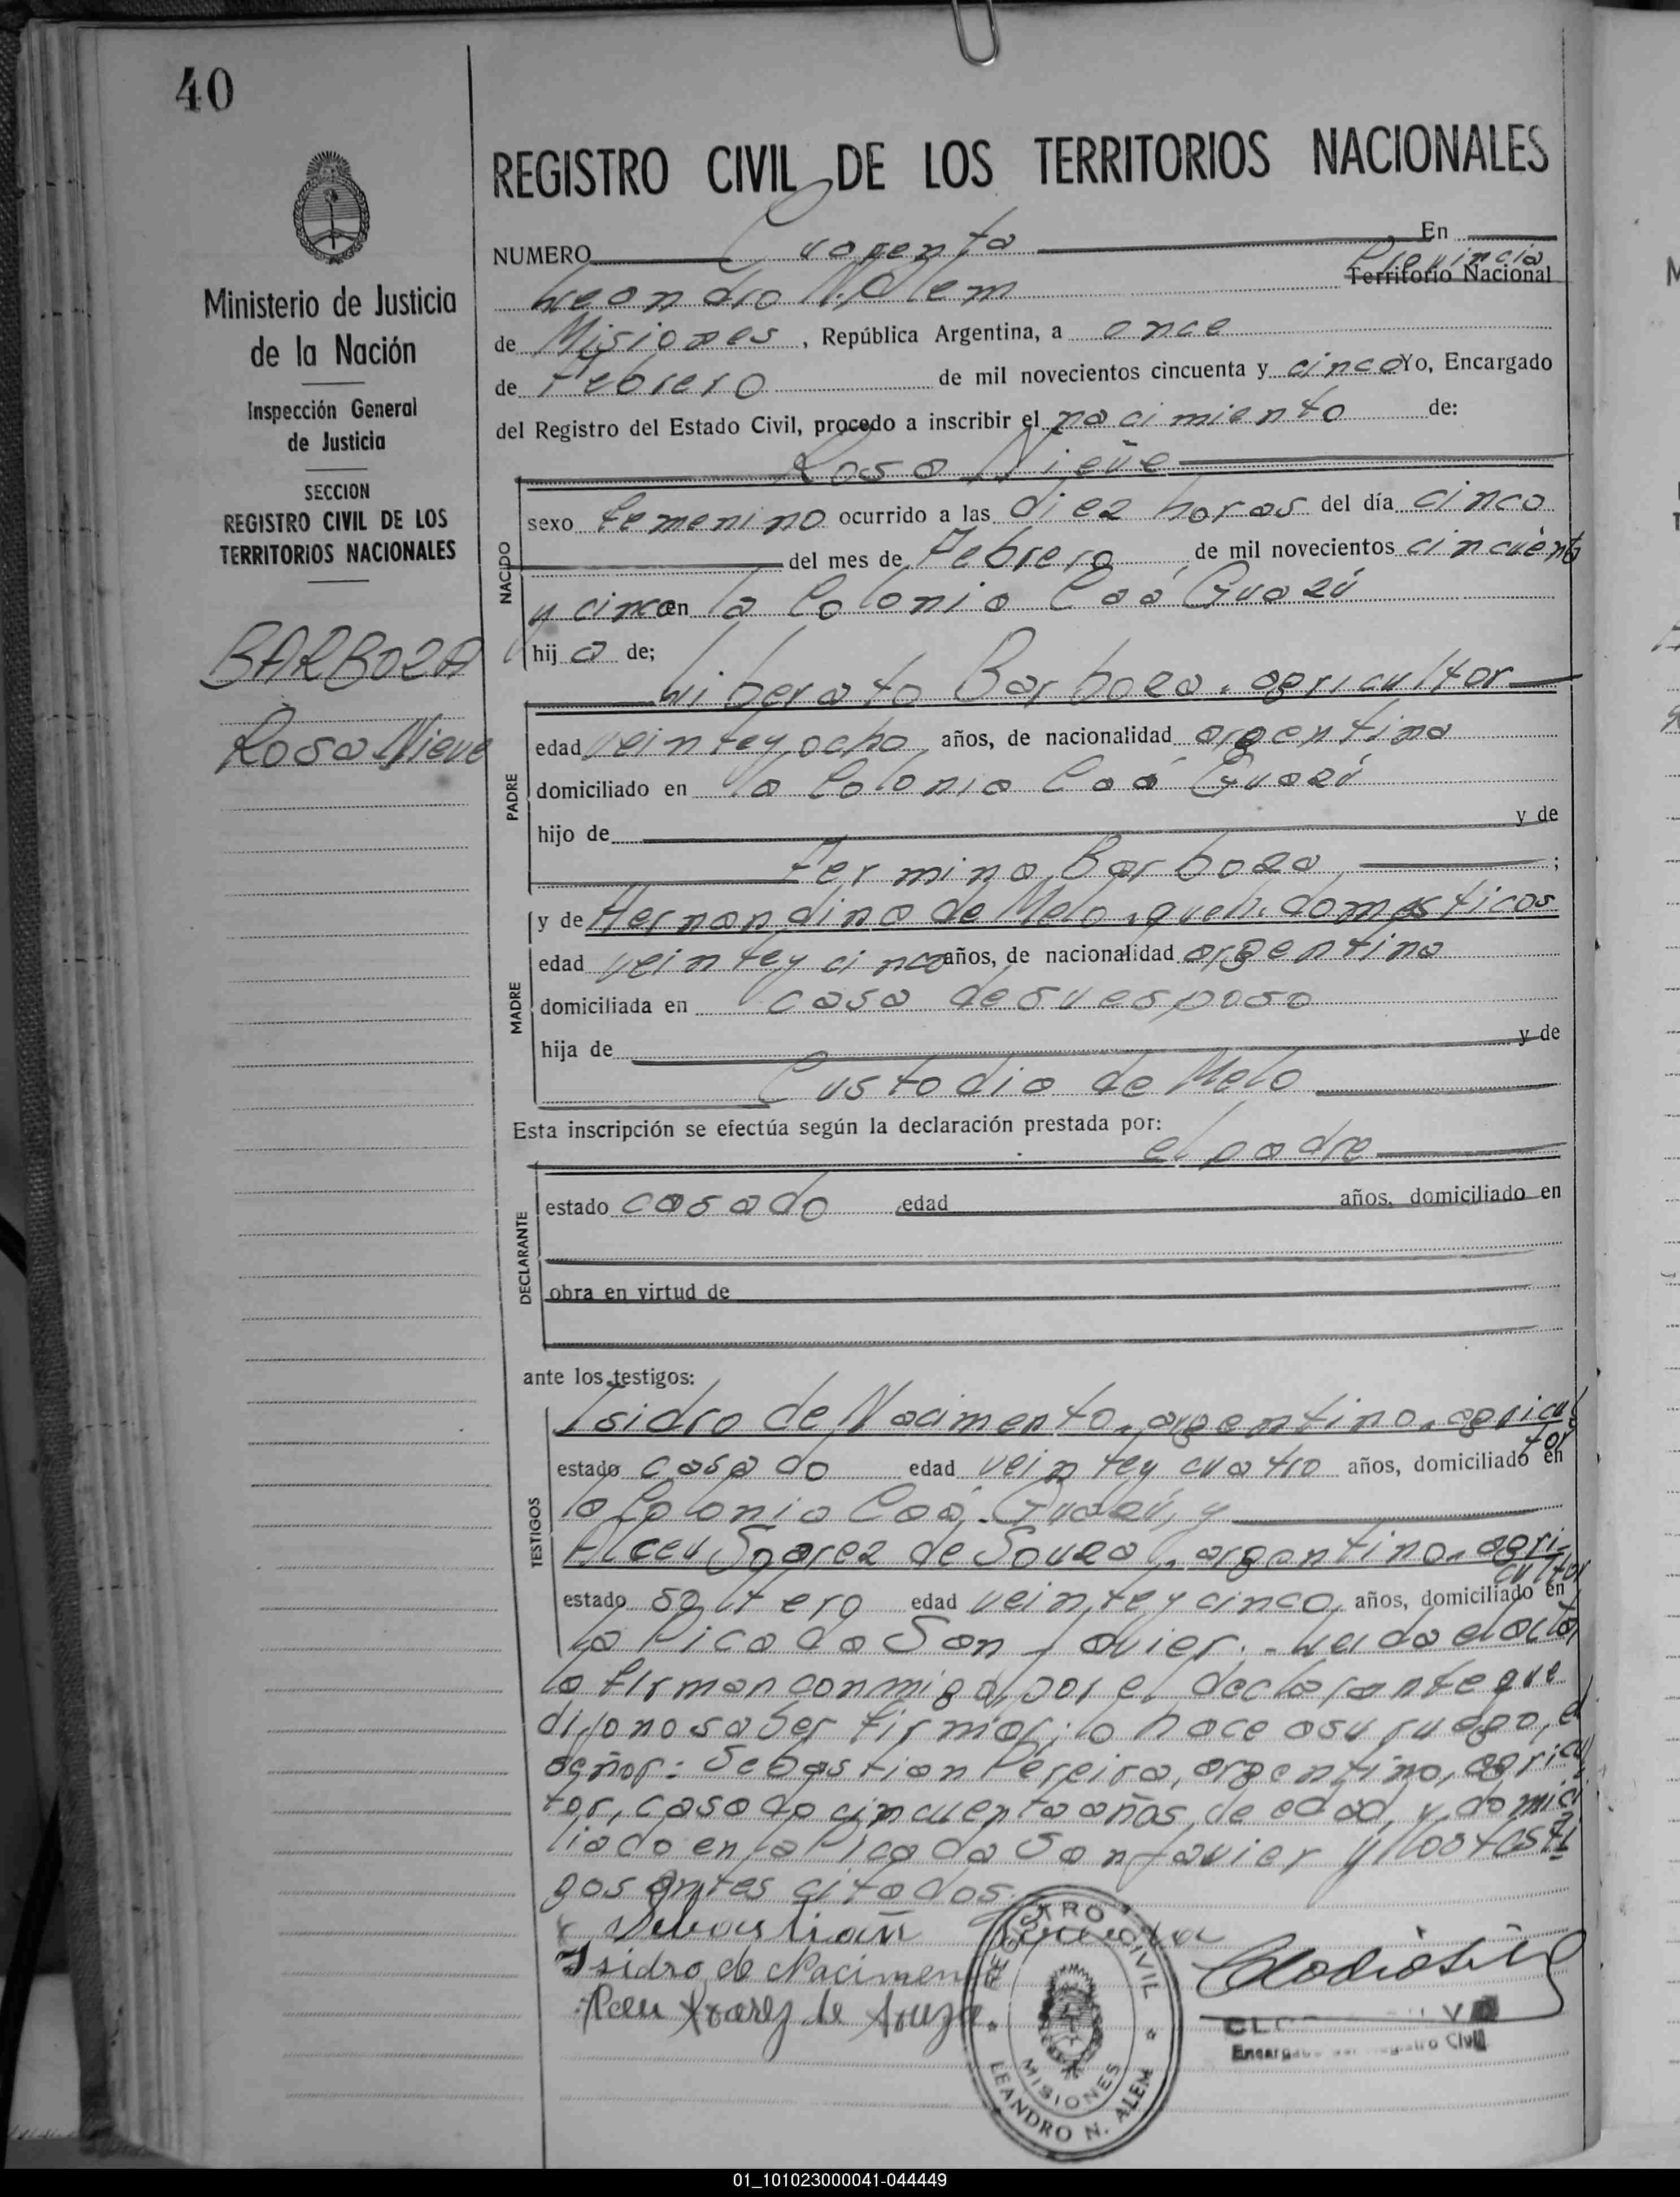 40
REGISTRO CIVIL DE LOS TERRITORIOS NACIONALES
Ministerio de Justicia
de la Nación
Inspección General
de Justicia
SECCION
REGISTRO CIVIL DE LOS
TERRITORIOS NACIONALES
BARBOZA
Rosa Nieve
NUMERO Cuarenta En
Provincia
Leandro N. Alem Territorio Nacional
de Misiones, República Argentina, a once
de Febrero de mil novecientos cincuenta y cinco Yo, Encargado
del Registro del Estado Civil, procedo a inscribir el nacimiento de:
Rosa Nieve
NACIDO
sexo femenino ocurrido a las diez horas del día cinco
del mes de Febrero de mil novecientos cincuenta
y cinco en la Colonia Caá Guazú
hija de;
Liberato Barboza. agricultor
PADRE
edad veinteyocho años, de nacionalidad argentina
domiciliado en la Colonia Caá Guazú
hijo de y de
Fermina Barboza ;
MADRE
y de Hernandina de Melo. queh. domesticos
edad veinteycinco años, de nacionalidad argentina
domiciliada en casa de su esposo
hija de y de
Custodia de Melo
Esta inscripción se efectúa según la declaración prestada por:
el padre
DECLARANTE
estado casado edad años, domiciliado en
obra en virtud de
ante los testigos:
TESTIGOS
Isidro de Nacimento. argentino. agricul
tor
estado casado edad veinteycuatro años, domiciliado en
la Colonia Caá Guazú, y
Alceu Soarez de Souza. argentino. agri-
cultor
estado soltero edad veinteycinco, años, domiciliado en
la Picada San Javier. - Leida el acta
la firman conmigo, por el declarante que
dijo no saber firmar, lo hace a su ruego, el
señor: Sebastian Pereira, argentino, agricul
tor, casado cincuenta años de edad, y domici
liado en la Picada San Javier y los testi
gos antes citados.
Sebastian Pereira
Isidro de Nacimento
Alceu Soarez de Souza.
REGISTRO CIVIL
MISIONES
LEANDRO N. ALEM
Encargado del Registro Civil
01_101023000041-044449